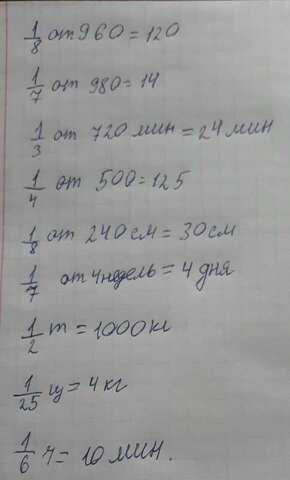 1/8 от 960 = 120
1/7 от 980 = 14
1/3 от 720 мин = 24 мин
1/4 от 500 = 125
1/8 от 240 см = 30 см
1/7 от 4 недель = 4 дня
1/2 т = 1000 кг
1/25 ц = 4 кг
1/6 ч = 10 мин.